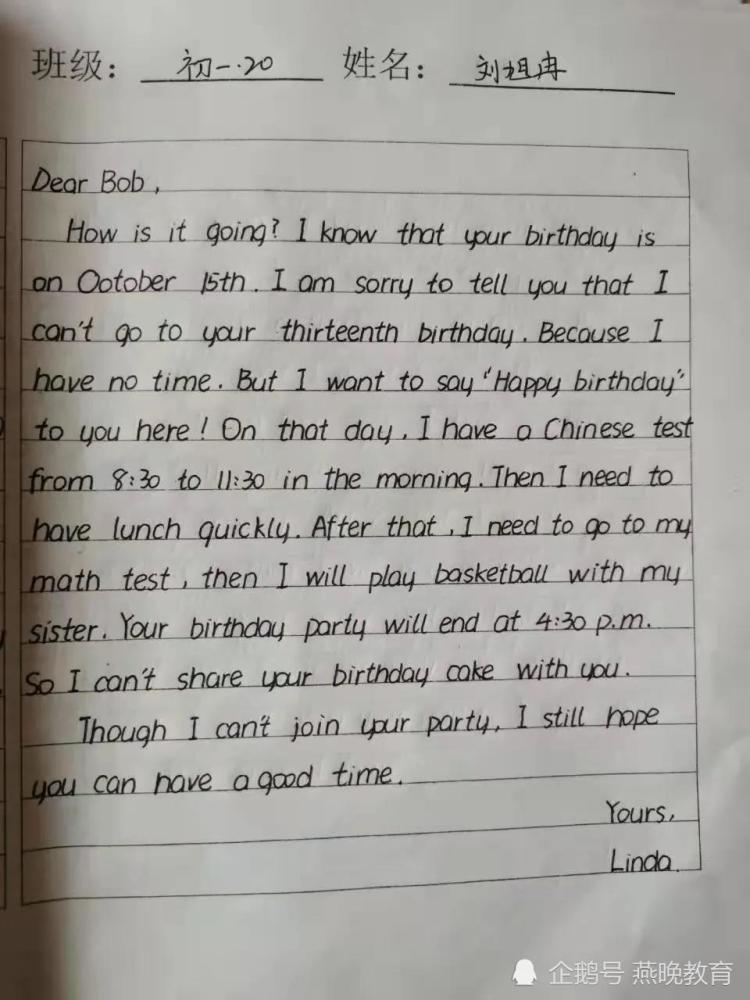 班级： 初一.20 姓名： 刘祖冉
Dear Bob,
How is it going? I know that your birthday is
on Ootober 15th. I am sorry to tell you that I
can't go to your thirteenth birthday. Because I
have no time. But I want to say "Happy birthday"
to you here! On that day, I have a Chinese test
from 8:30 to 11:30 in the morning. Then I need to
have lunch quickly. After that, I need to go to my
math test, then I will play basketball with my
sister. Your birthday party will end at 4:30 p.m.
So I can't share your birthday cake with you.
Though I can't join your party, I still hope
you can have a good time.
Yours,
Linda.
企鹅号 燕晚教育